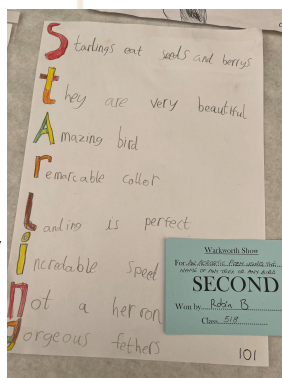 Starlings eat seeds and berrys
they are very beautiful
Amazing bird
remarcable coller
Landing is perfect
incredable speed
not a herron
gorgeous fethers
101
Warkworth Show
For AN ACROSTIC POEM USING THE
NAME OF ANY TREE OR ANY BIRD
SECOND
Won by Robin B
Class 518